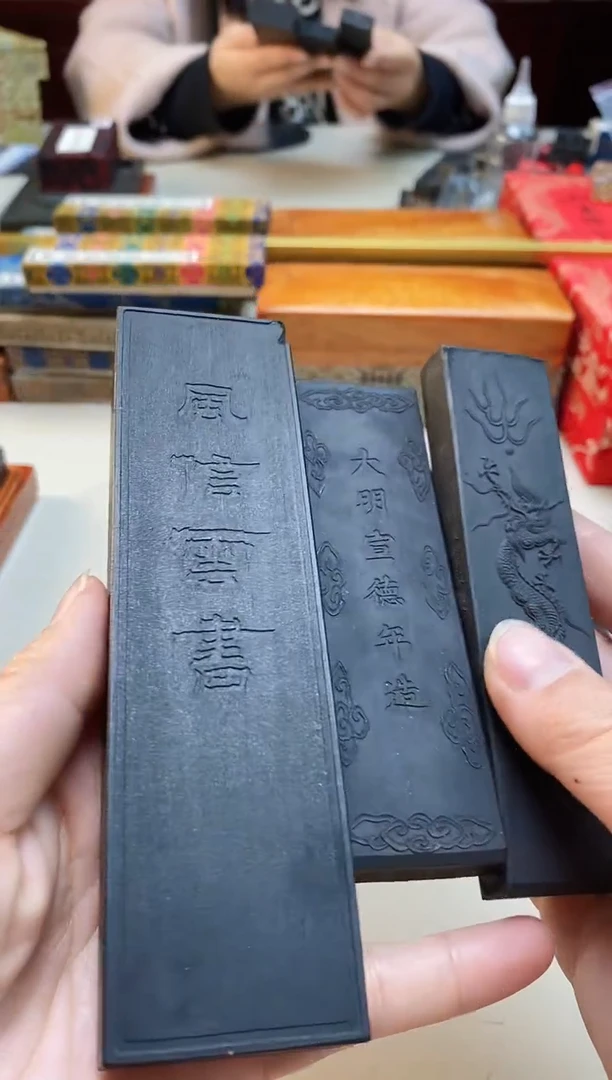 風信雲書
大明宣德年造